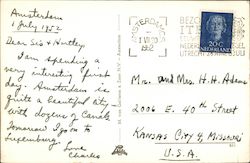 Amsterdam
1 July 1952
Dear Sis & Huntley
I am spending a
very interesting first
day. Amsterdam is
quite a beautiful city
with dozens of Canals
Tomorrow I go on to
Luxembourg.
Love
Charles
AMSTERDAM
1952
BEZO
NEDER
UTRECHT
NEDERLAND
20c
Mr. and Mrs. H.H. Adams
2006 E. 40th Street
Kansas City 4, Missouri
U.S.A.